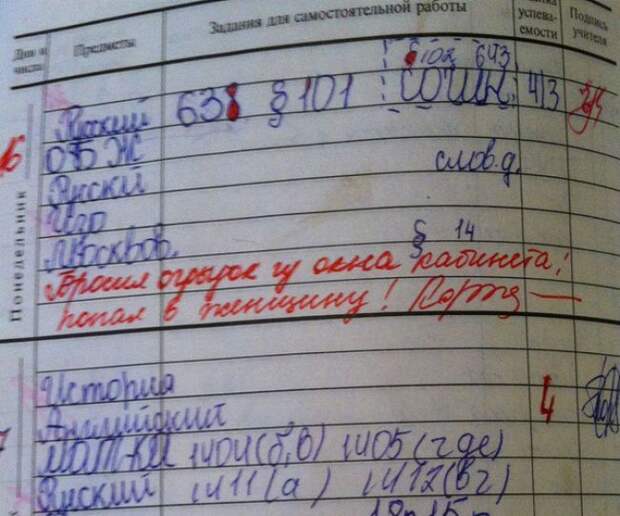 Дни и числа Предметы Задания для самостоятельной работы успева-емости Подпись учителя
§102 643
Русский 638 §101 СОЧИН. 4/3
16
ОБЖ
Рускй слов.д.
Изо
Москвов. § 14
Понедельник
Бросил огрызок из окна кабинета!
попал в женщину!
История
Английский 4
МАТ-КА 1404(б,в) 1405(где)
Руский 1411(а) 1412(вг)